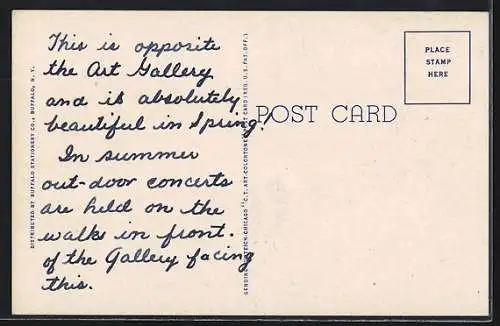 This is opposite
the Art Gallery
and is absolutely
beautiful in Spring!
In summer
out-door concerts
are held on the
walks in front.
of the Gallery facing
this.
DISTRIBUTED BY BUFFALO STATIONERY CO., BUFFALO, N.Y.
GENUINE CURTEICH-CHICAGO "C.T. ART-COLORTONE" POST CARD (REG. U.S. PAT. OFF.)
POST CARD
PLACE
STAMP
HERE